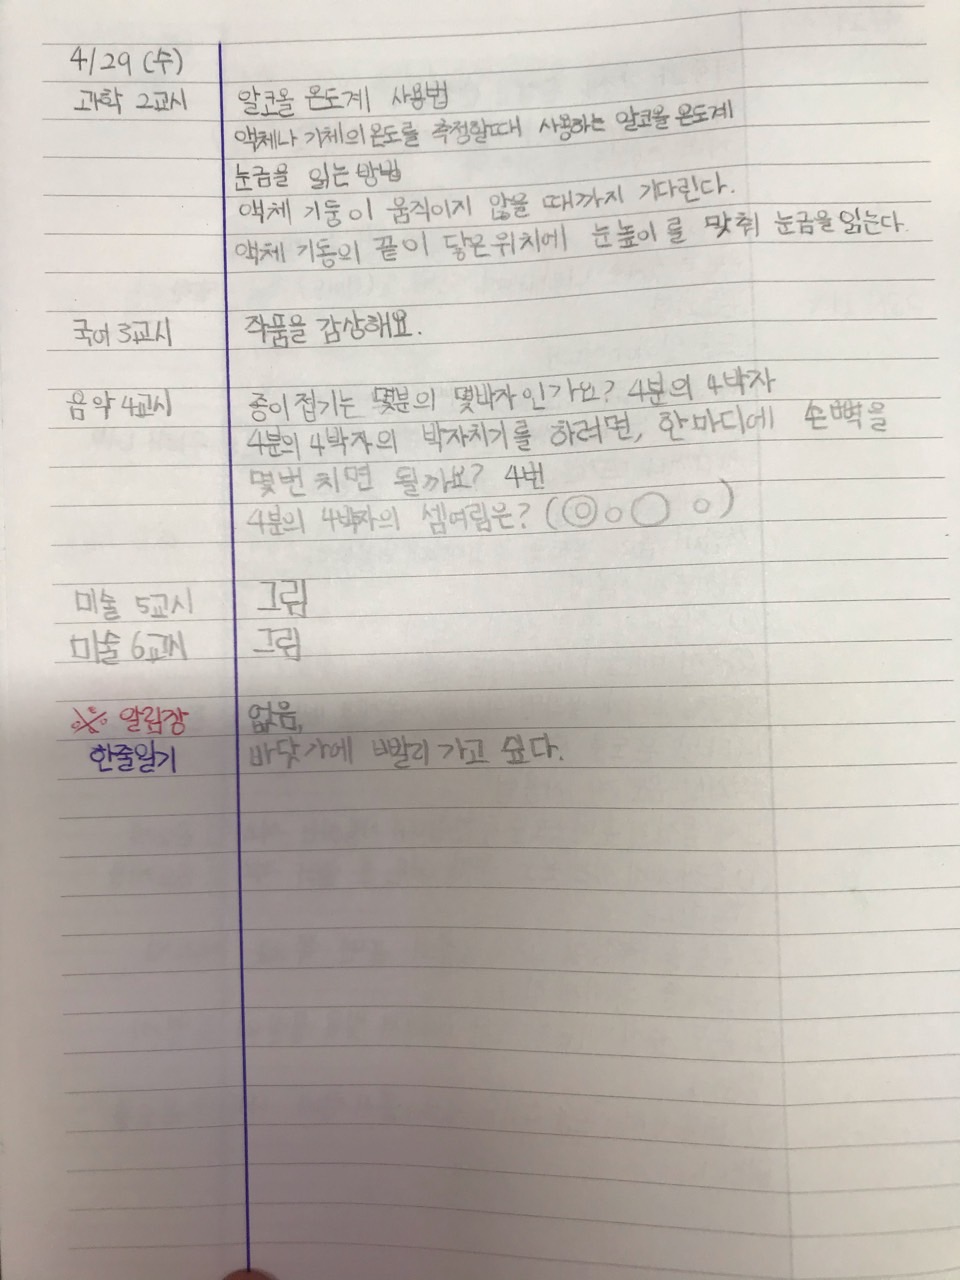 4/29 (수)
과학 2교시 알코올 온도계 사용법
액체나 기체의 온도를 측정할때 사용하는 알코올 온도계
눈금을 읽는 방법
액체 기둥이 움직이지 않을 때까지 기다린다.
액체 기동의 끝이 닿은 위치에 눈높이를 맞춰 눈금을 읽는다.
국어 3교시 작품을 감상해요.
음악 4교시 종이접기는 몇분의 몇박자인가요? 4분의 4박자
4분의 4박자의 박자치기를 하려면, 한마디에 손뼉을
몇번 치면 될까요? 4번
4분의 4박자의 셈여림은? (◎○◯○)
미술 5교시 그림
미술 6교시 그림
※ 알림장 없음,
한줄일기 바닷가에 빨리 가고 싶다.